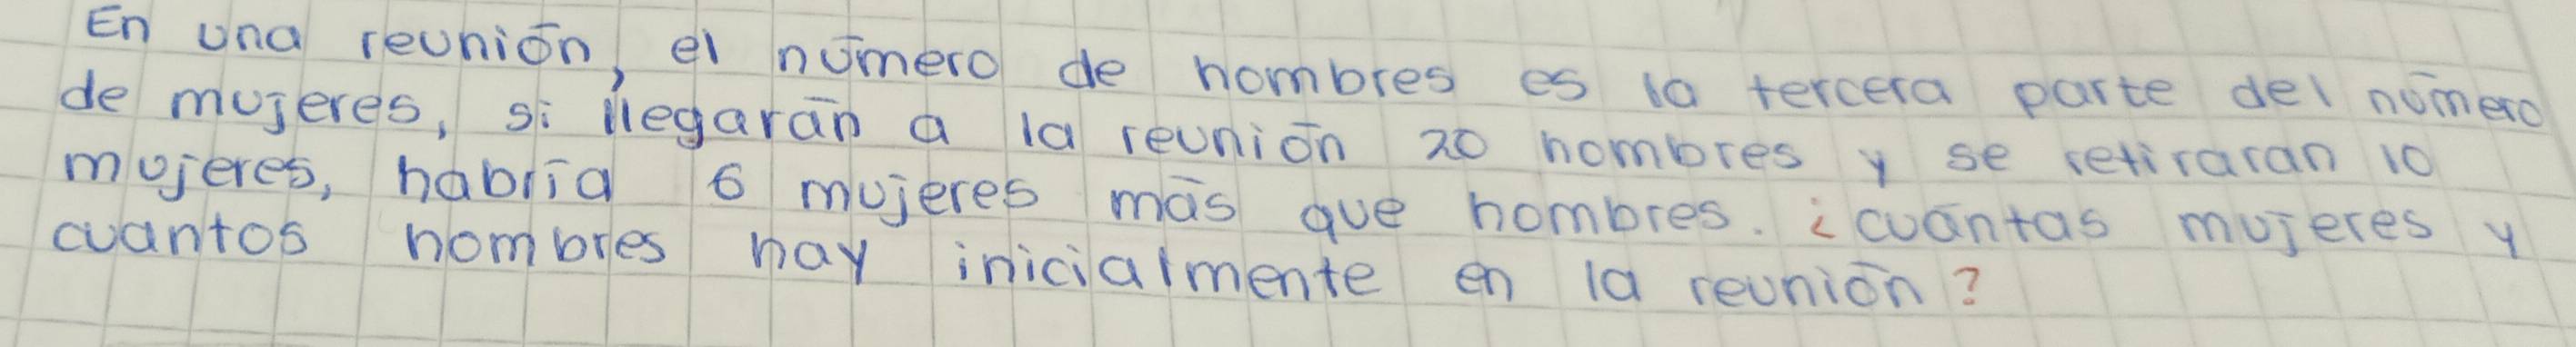 En una reunión, el número de hombres es la tercera parte del número
de mujeres, si llegarán a la reunión 20 hombres y se retiraran 10
mujeres, habría 6 mujeres más que hombres. ¿cuántas mujeres y
cuantos hombres hay inicialmente en la reunión?